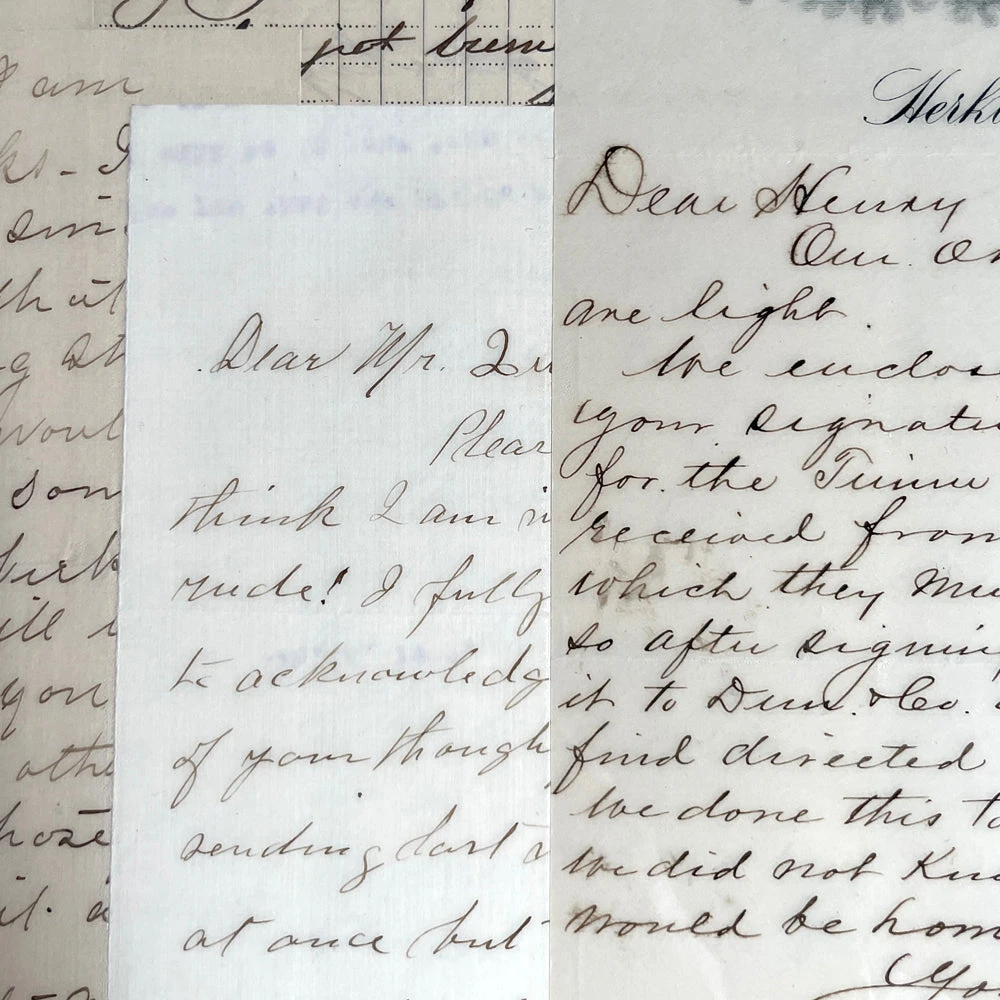 not
I am
ks - I
sin
that
g st
woul
son
ill i
you
othe
hose
it. a
Dear Mr.
Pleas
think I am
rude! I fully
to acknowledg
of your though
sending last
at once but
Herki
Dear Henry
Our Or
are light.
We enclos
your signatu
for the
received from
which they mu
so after signing
it to Dun & Co.
find directed
We done this to
We did not Kno
would be hom
Yo